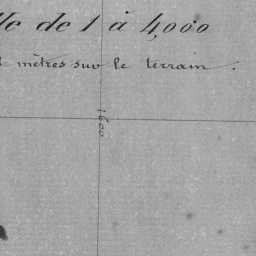 lle de 1 à 4,000
mètres sur le terrain.
1600